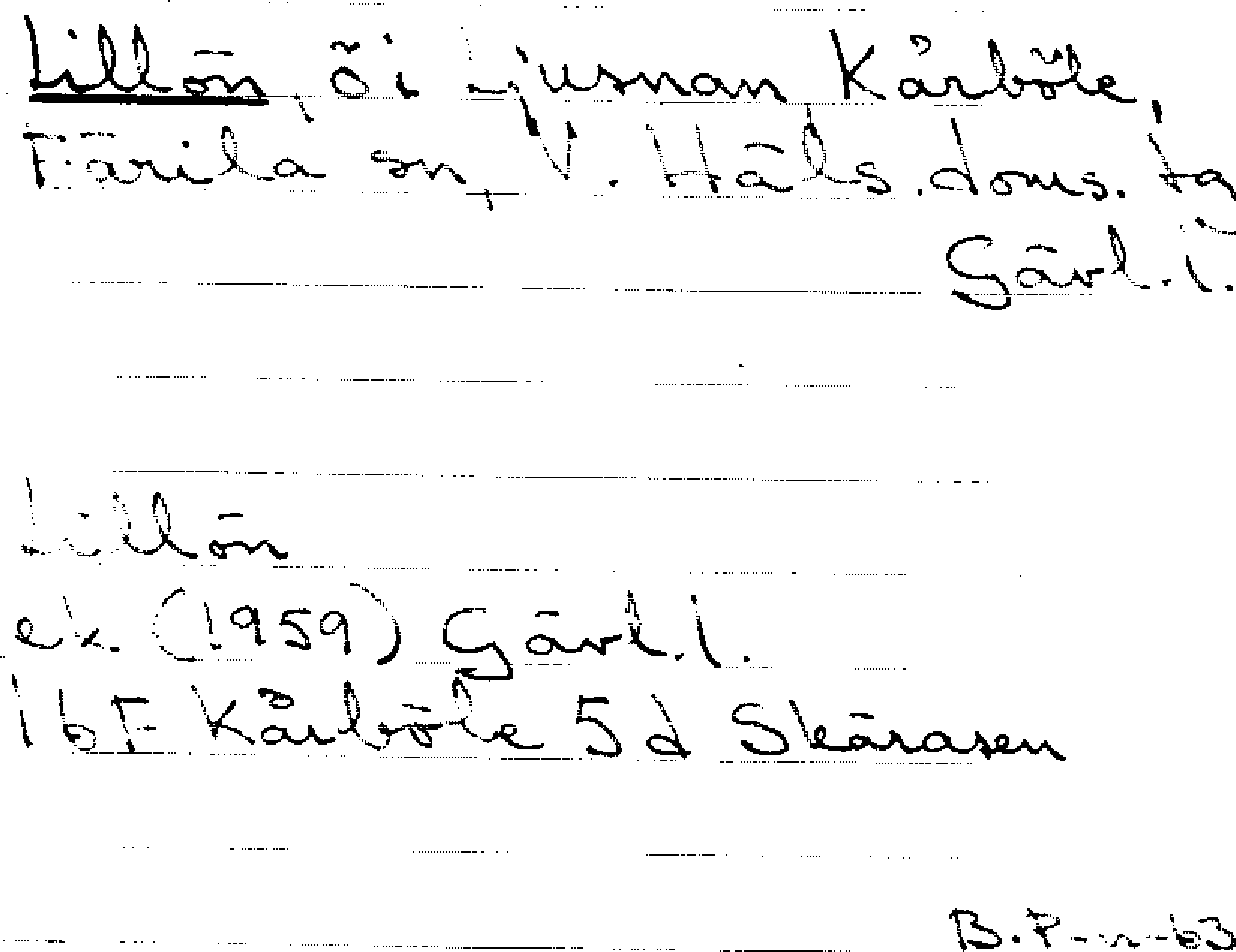 Lillön, ö i Ljusnan Kårböle,
Färila sn, V. Häls. doms. tg
Gävl. l.
Lillön
ek. (1959) Gävl. l.
16F Kårböle 5d Skäråsen
B.P-n-63